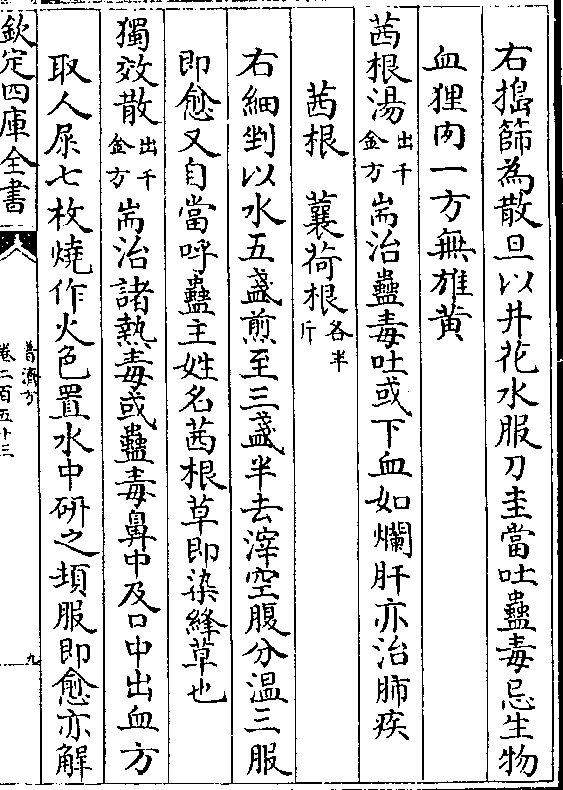 右搗篩為散旦以井花水服刀圭當吐蠱毒忌生物
血狸肉一方無雄黄
茜根湯出千金方耑治蠱毒吐或下血如爛肝亦治肺疾
茜根 蘘荷根各半斤
右細剉以水五盞煎至三盞半去滓空腹分温三服
即愈又自當呼蠱主姓名茜根草即染絳草也
獨效散出千金方耑治諸熱毒或蠱毒鼻中及口中出血方
取人屎七枚燒作火色置水中研之頓服即愈亦解
欽定四庫全書
普濟方
卷二百五十三
九